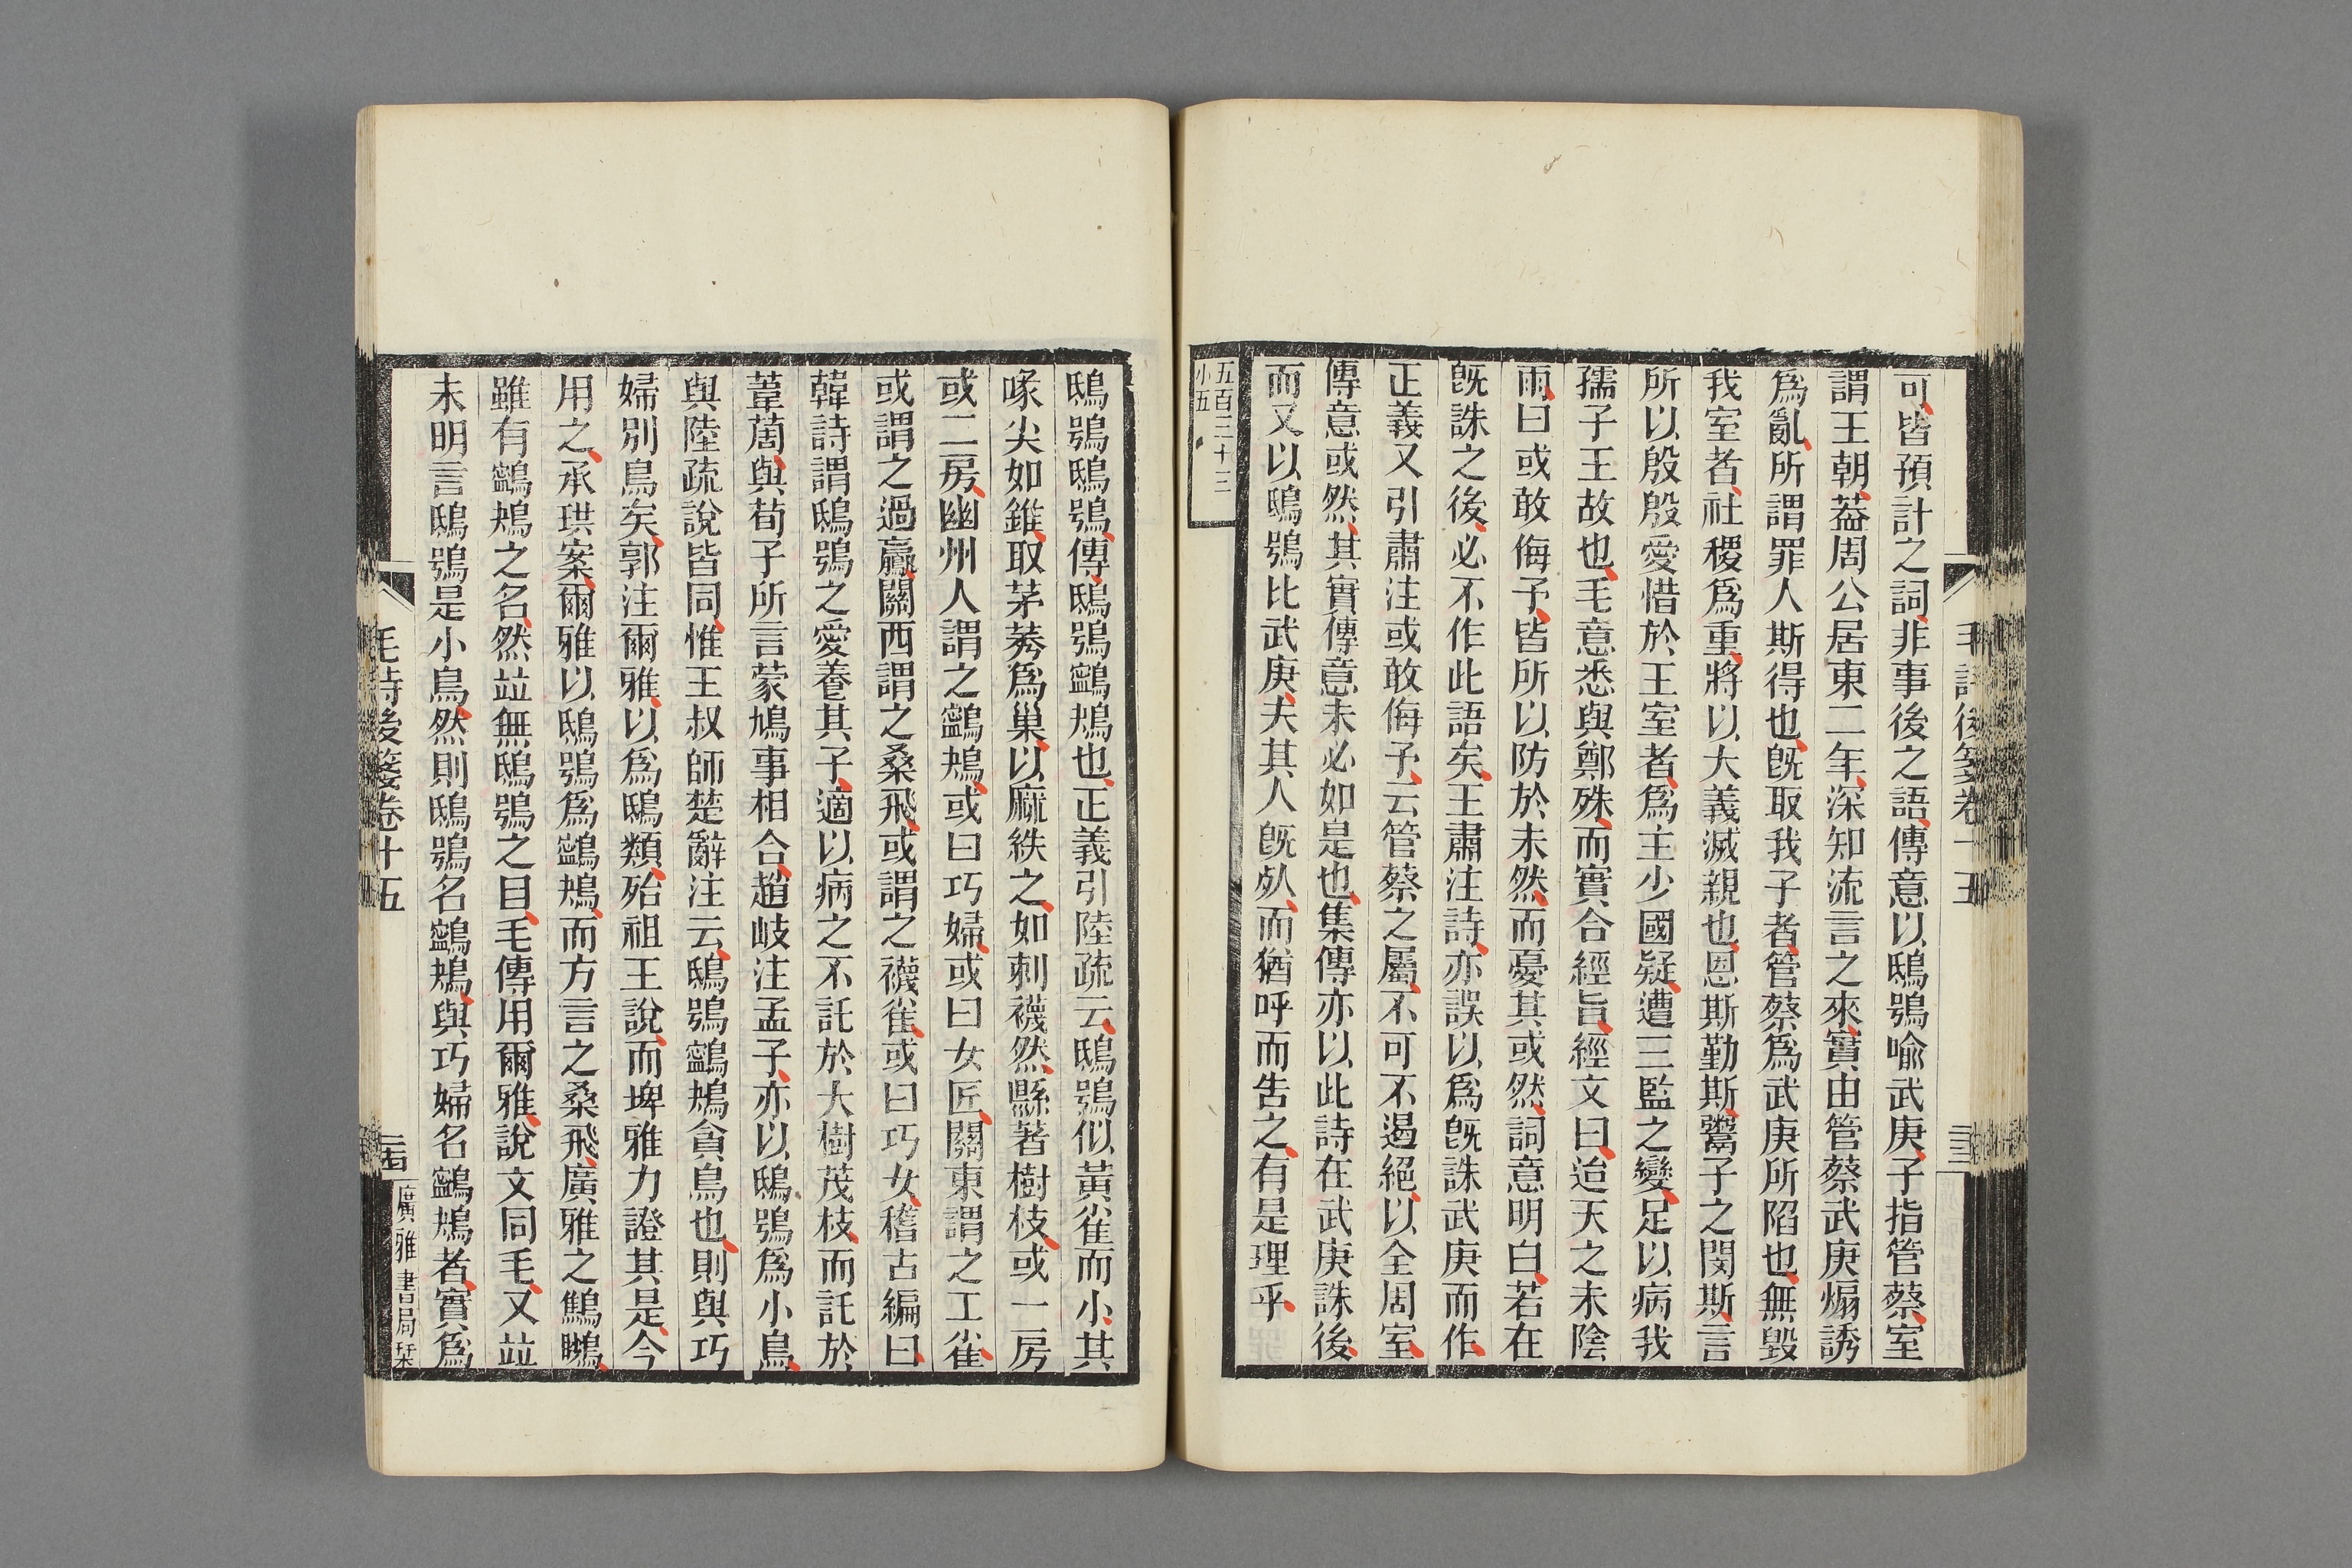 毛詩後箋卷十五
三三
可皆預計之詞非事後之語傳意以鴟鴞喻武庚子指管蔡室
謂王朝葢周公居東二年深知流言之來實由管蔡武庚煽誘
爲亂所謂罪人斯得也旣取我子者管蔡爲武庚所陷也無毀
我室者社稷爲重將以大義滅親也恩斯勤斯鬻子之閔斯言
所以殷殷愛惜於王室者爲主少國疑遭三監之變足以病我
孺子王故也毛意悉與鄭殊而實合經旨經文曰迨天之未陰
雨曰或敢侮予皆所以防於未然而憂其或然詞意明白若在
旣誅之後必不作此語矣王肅注詩亦誤以爲旣誅武庚而作
正義又引肅注或敢侮予云管蔡之屬不可不遏絕以全周室
傳意或然其實傳意未必如是也集傳亦以此詩在武庚誅後
而又以鴟鴞比武庚夫其人旣㱙而猶呼而告之有是理乎
五百三十三
小五
鴟鴞鴟鴞傳鴟鴞鸋鴂也正義引陸疏云鴟鴞似黃雀而小其
喙尖如錐取茅莠爲巢以麻紩之如刺襪然縣著樹枝或一房
或二房幽州人謂之鸋鴂或曰巧婦或曰女匠關東謂之工雀
或謂之過鸁關西謂之桑飛或謂之襪雀或曰巧女稽古編曰
韓詩謂鴟鴞之愛養其子適以病之不託於大樹茂枝而託於
葦䓣與荀子所言蒙鳩事相合趙岐注孟子亦以鴟鴞爲小鳥
與陸疏說皆同惟王叔師楚辭注云鴟鴞鸋鴂貪鳥也則與巧
婦別鳥矣郭注爾雅以爲鴟類殆祖王說而埤雅力證其是今
用之承珙案爾雅以鴟鴞爲鸋鴂而方言之桑飛廣雅之鷦䳟
雖有鸋鴂之名然竝無鴟鴞之目毛傳用爾雅說文同毛又竝
未明言鴟鴞是小鳥然則鴟鴞名鸋鴂與巧婦名鸋鴂者實爲
毛詩後箋卷十五
三四
廣雅書局栞